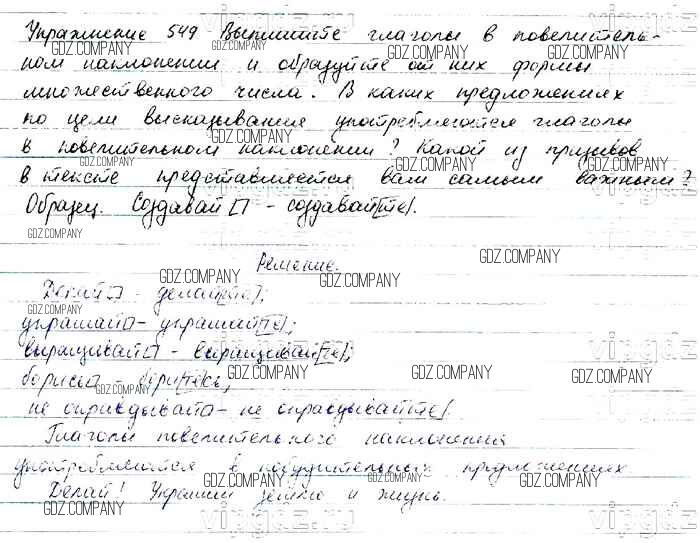 Упражнение 549 Выпишите глаголы в повелитель-
ном наклонении и образуйте от них формы
множественного числа. В каких предложениях
по цели высказывания употребляются глаголы
в повелительном наклонении? Какой из призывов
в тексте представляется вам самым важным?
Образец. Создавай□ - создавай[те].
Решение.
Делай□ - делай[те];
украшай□ - украшай[те];
выращивай□ - выращивай[те];
борись□ - бори[те]сь;
не оправдывай□ - не оправдывай[те].
Глаголы повелительного наклонения
употребляются в побудительных предложениях
Делай! Украшай землю и жизнь.